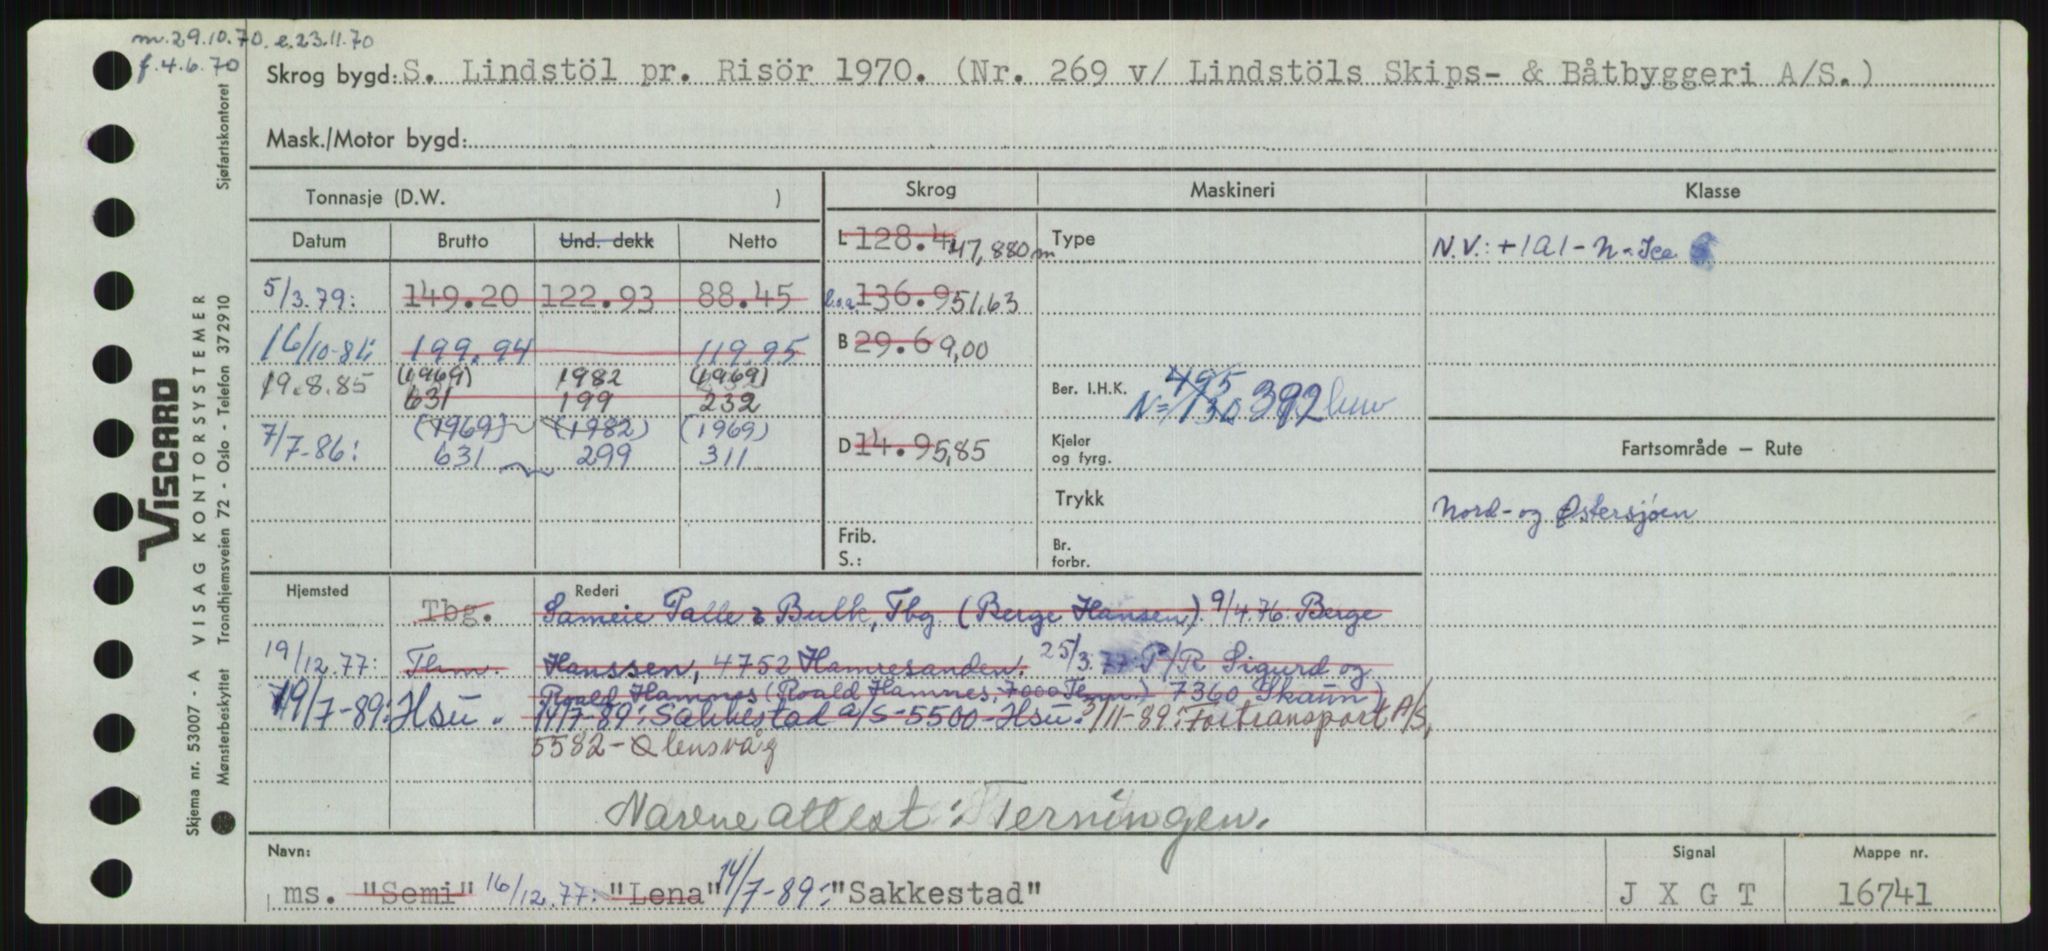 m. 29.10.70. e. 23.11.70
f. 4.6.70
Skrog bygd: S. Lindstöl pr. Risör 1970. (Nr. 269 v/ Lindstöls Skips- & Båtbyggeri A/S.)
Mask./Motor bygd:
Tonnasje (D.W. )
Skrog Maskineri Klasse
Datum Brutto Und. dekk Netto
L 128.4 47,880 m
Type
N.V.: +1A1 - N - Ice
5/3.79: 149.20 122.93 88.45
l.o.a. 136.9 51,63
16/10-84: 199.94 119.95
B 29.6 9,00
19.8.85 (1969) 1982 (1969)
631 199 232
Ber. I.H.K. 495
N= 130 392
7/7-86: (1969) (1982) (1969)
631 299 311
D 14.9 5,85
Kjeler
og fyrg.
Fartsområde — Rute
Trykk
Nord- og Østersjøen
Frib.
S.:
Br.
forbr.
Hjemsted Rederi
Tbg. Sameie Palle & Bulk, Tbg. (Berge Hansen) 9/4.76. Berge
19/12.77: Thm. Hanssen, 4752 Hamresanden. 25/3.77: P/R Sigurd og
Roald Hamnes (Roald Hamnes, 7000 Thm.) 7360 Skaun)
14/7-89: Hsu. 14/7-89: Sakkestad A/S - 5500 - Hsu. 3/11-89: Fortransport A/S,
5582 - Ølensvåg
Navneattest: Terningen.
Navn: Signal Mappe nr.
ms. "Semi" 16/12.77: "Lena" 14/7-89: "Sakkestad" J X G T 16741
VISCARD
Skjema nr. 53007 - A VISAG KONTORSYSTEMER
Mønsterbeskyttet Trondhjemsveien 72 - Oslo - Telefon 37 29 10 Sjøfartskontoret